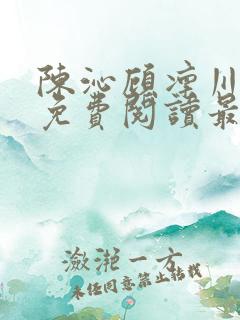 陳沁顧凜川
免費閱讀最
瀲滟一方
未经同意禁止转载